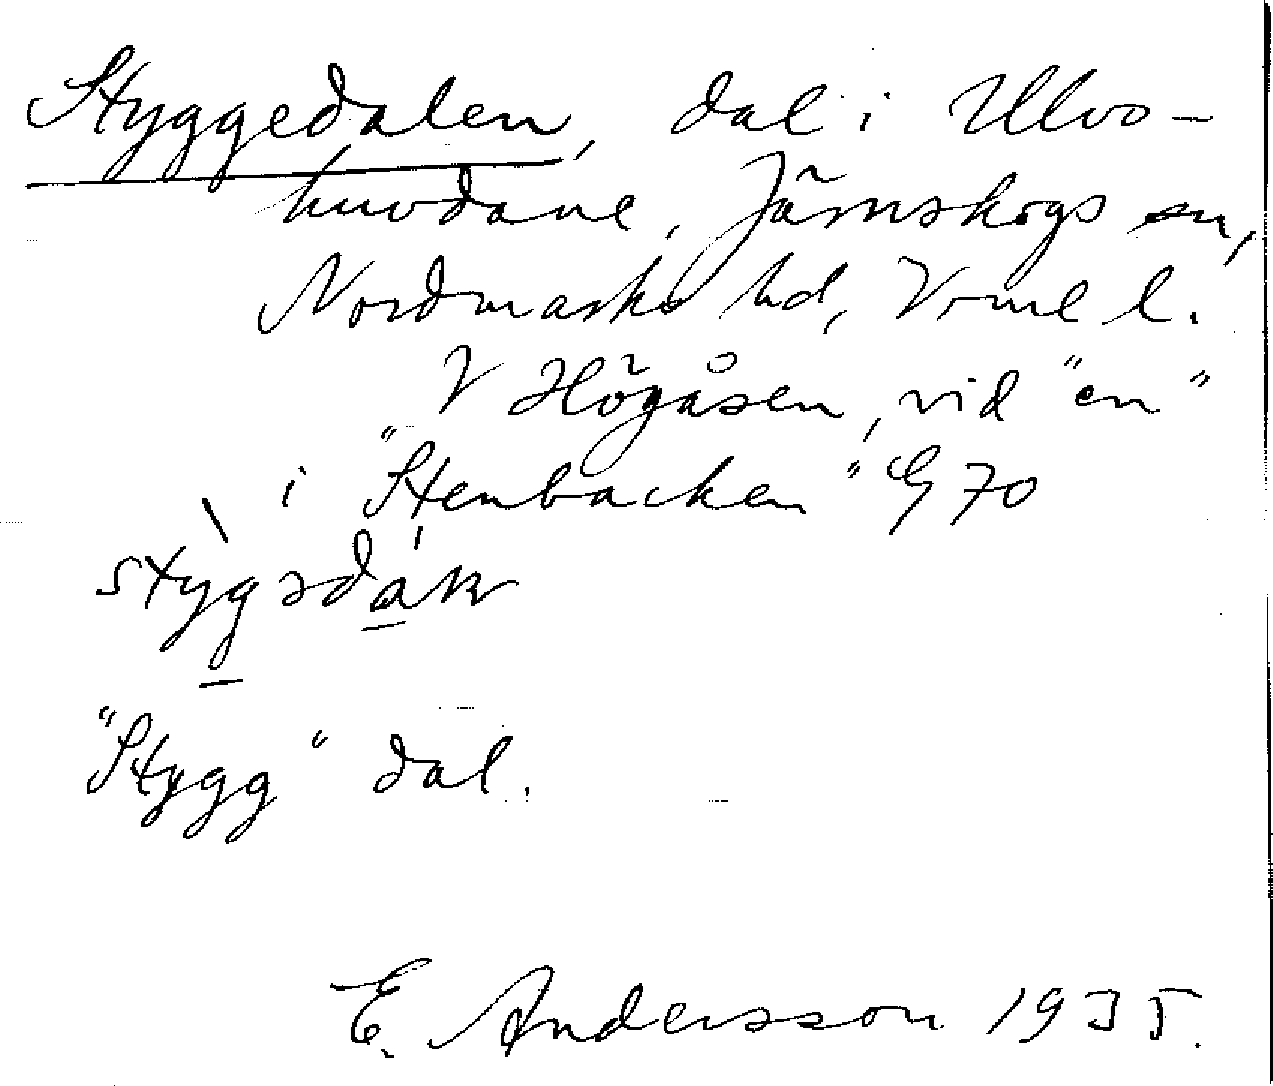 Styggedalen, dal i Ulvs-
huvdane, Järnskogs sn,
Nordmarks hd, Vrml l.
V Högåsen, vid "en"
i "Stenbacken" G 70
"Stygg" dal.
E. Andersson 1935.